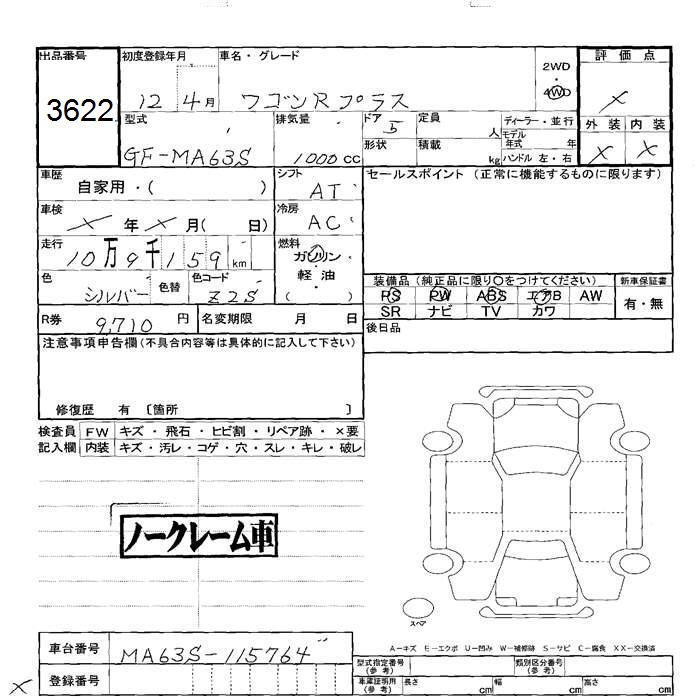 出品番号
3622
初度登録年月
12 4月
車名・グレード
ワゴンRプラス
2WD
4WD
評価点
X
外装 内装
X X
型式
GF-MA63S
排気量
1000cc
ドア 5
形状
定員 人
積載 kg
ディーラー・並行
モデル年式 年
ハンドル 左・右
車歴
自家用・( )
シフト
AT
セールスポイント (正常に機能するものに限ります)
車検
X年X月( 日)
冷房
AC
走行
10万9千159km
燃料
ガソリン
・
軽油
( )
色
シルバー
色替
色コード
Z2S
装備品(純正品に限り○をつけてください)
新車保証書
PS PW ABS エアB AW
SR ナビ TV カワ
有・無
R券
9,710円
名変期限 月 日
後日品
注意事項申告欄(不具合内容等は具体的に記入して下さい)
修復歴 有 〔箇所 〕
検査員記入欄
FW キズ・飛石・ヒビ割・リペア跡・×要
内装 キズ・汚レ・コゲ・穴・スレ・キレ・破レ
ノークレーム車
スペア
A−キズ E−エクボ U−凹み W−補修跡 S−サビ C−腐食 XX−交換済
車台番号
MA63S-115764
登録番号
型式指定番号(参考)
類別区分番号(参考)
車庫証明用(参考)
長さ cm
幅 cm
高さ cm
X